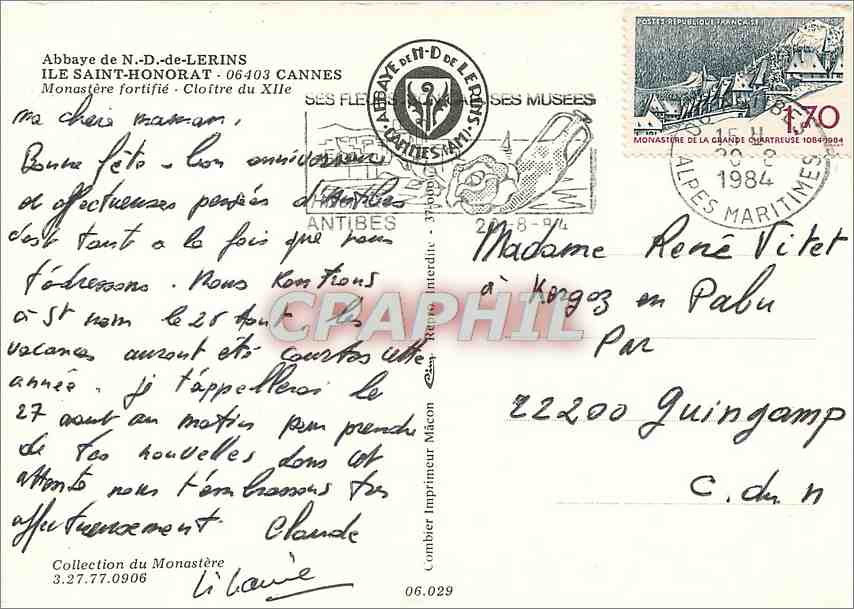 Abbaye de N.-D.-de-LERINS
ILE SAINT-HONORAT - 06403 CANNES
Monastère fortifié - Cloître du XIIe
ma chère maman,
Bonne fête - bon anniversaire
et affectueuses pensées d'Antibes
c'est tout à la fois que nous
t'adressons. Nous rentrons
à St nom le 26 Aout, les
vacances auront été courtes cette
année. je t'appellerai le
27 aout au matin pour prendre
de tes nouvelles dans cet
attente nous t'embrassons très
affectueusement. Claude
Collection du Monastère
3.27.77.0906
ABBAYE DE N-D DE LERINS
CANNES (A.M.)
SES MUSEES
ANTIBES
POSTES RÉPUBLIQUE FRANÇAISE
1,70
MONASTÈRE DE LA GRANDE CHARTREUSE 1084-1984
15 H
1984
ALPES MARITIMES
Combier Imprimeur Mâcon
Cim
Repro. Interdite
06.029
Madame René Vitet
à Kergoz en Pabu
Par
22200 Guingamp
C. du N
CPAPHIL